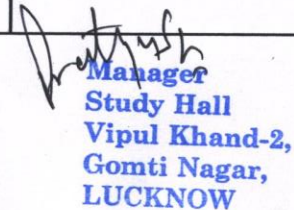 Manager
Study Hall
Vipul Khand-2,
Gomti Nagar,
LUCKNOW